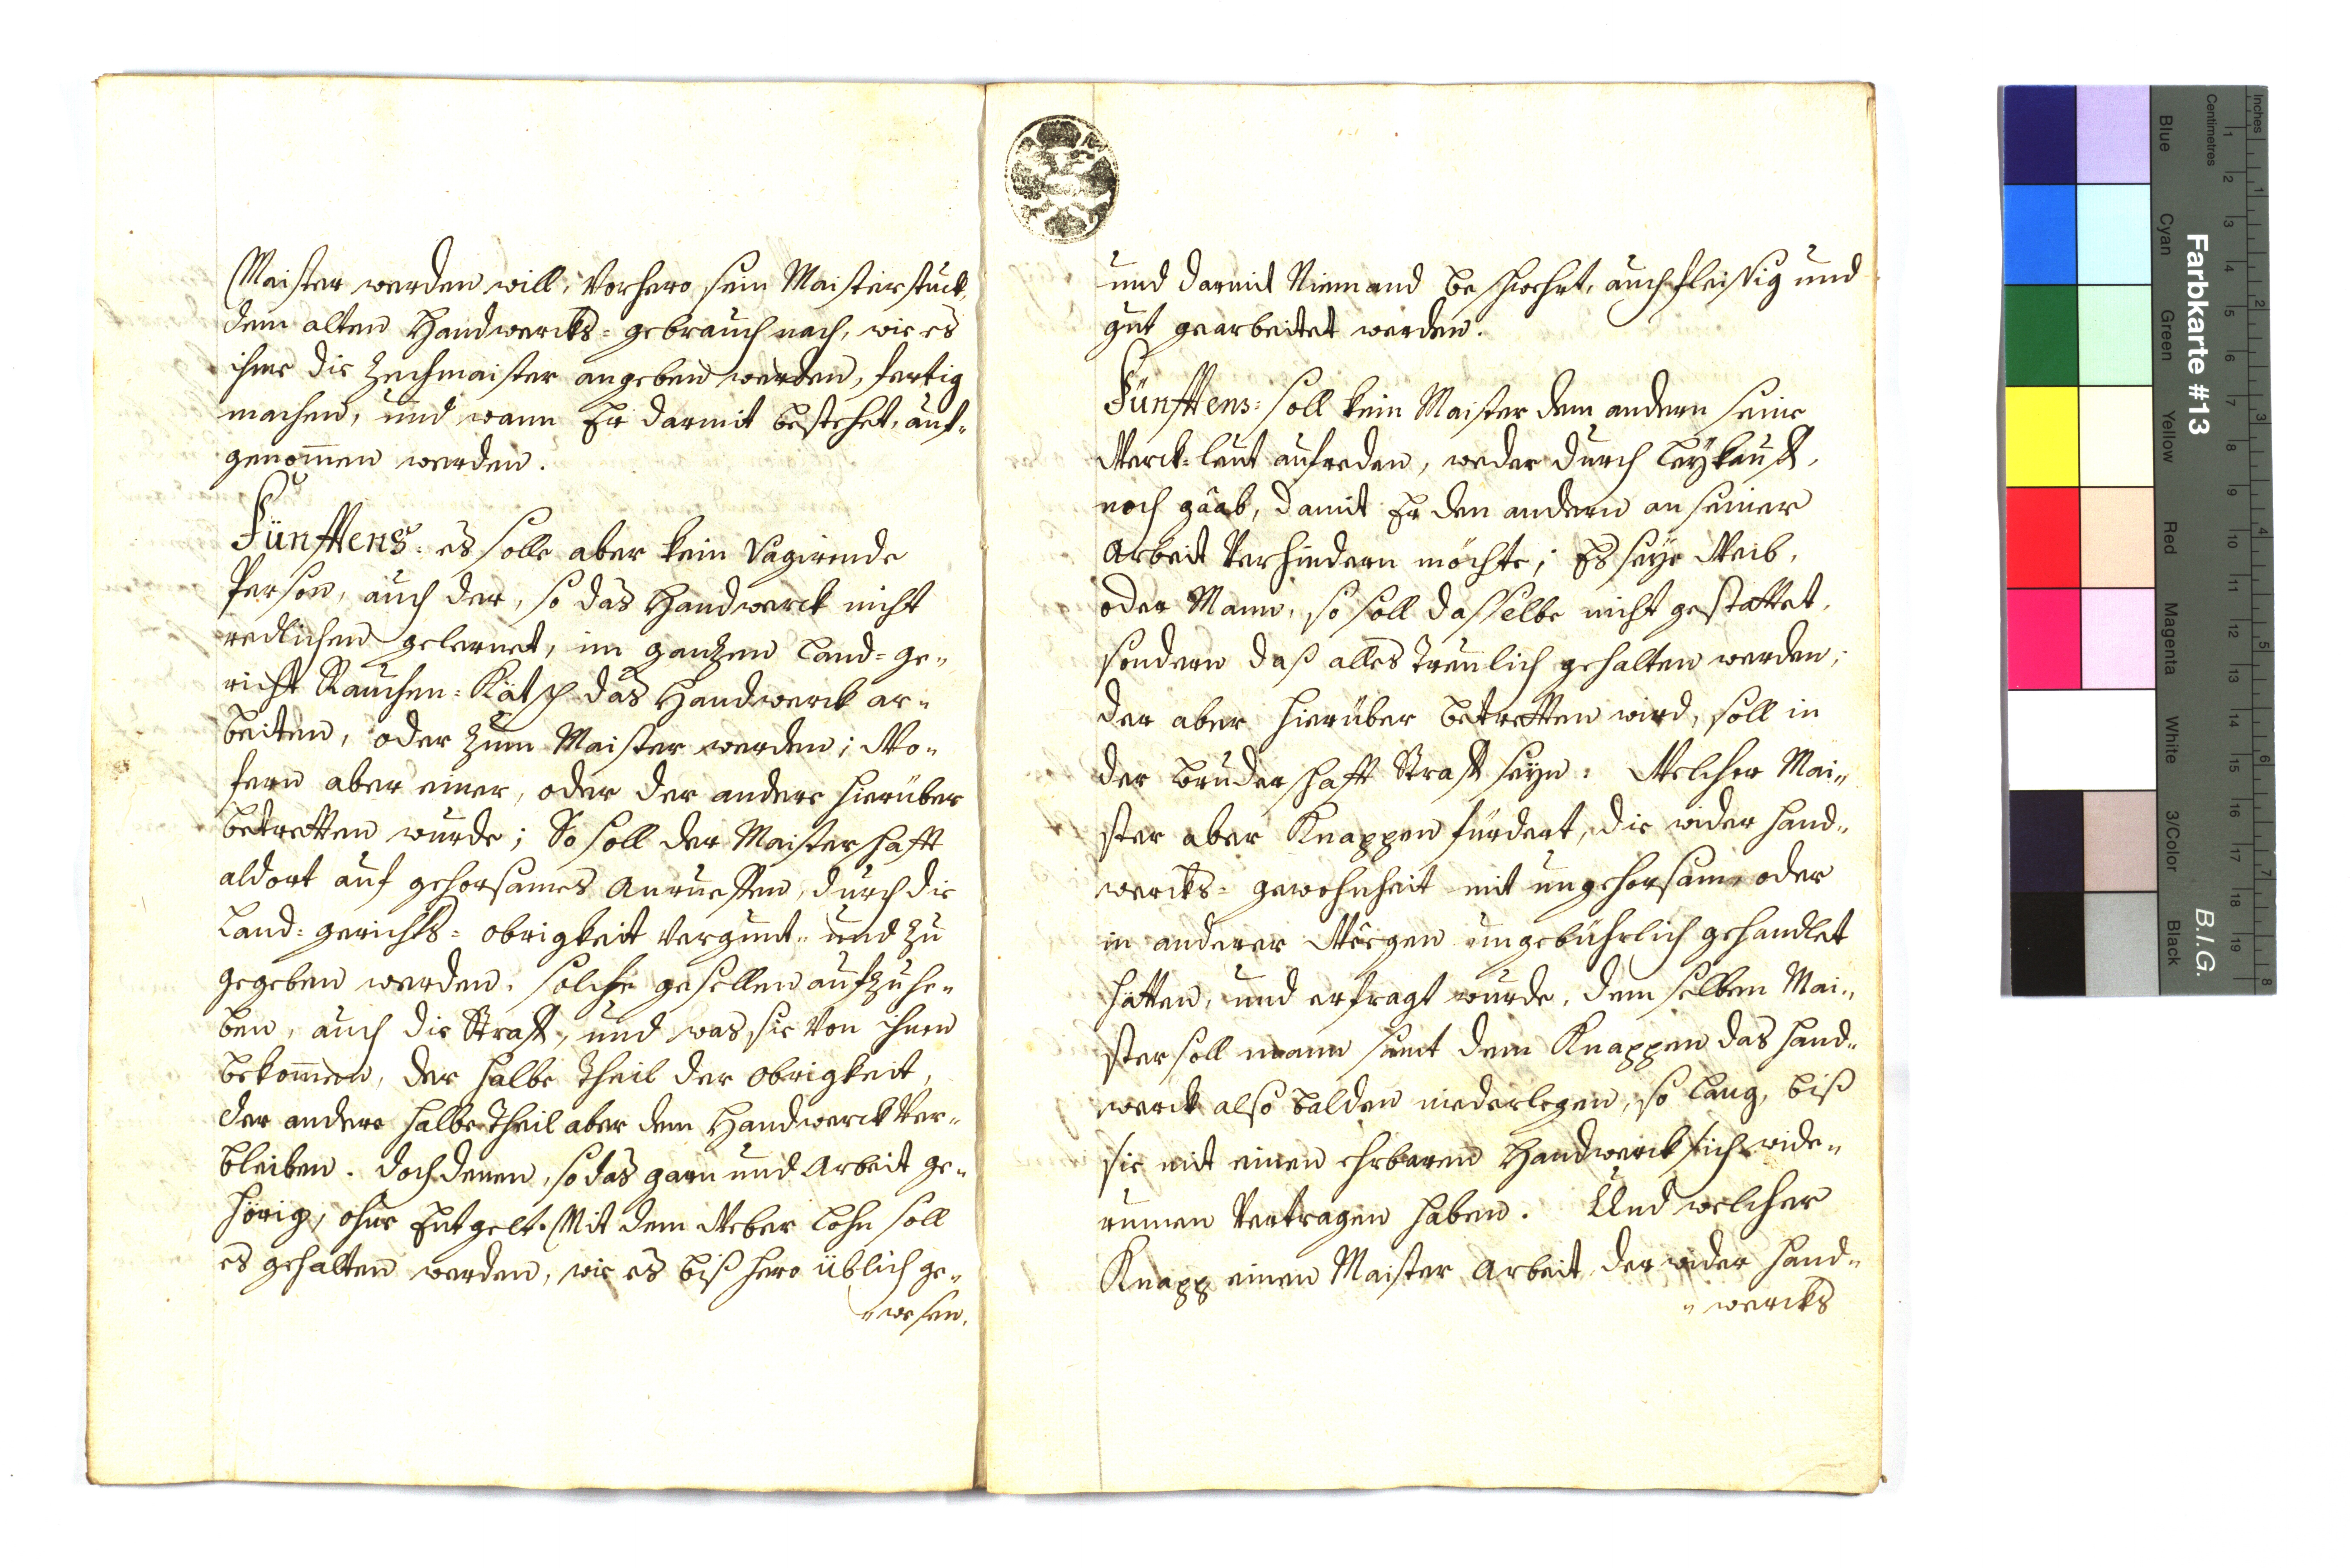 Maister werden will, Vorhero sein Maisterstuck,
dem alten Handwercks=gebrauch nach, wie es
ihme die Zechmaister angeben werden, fertig
machen, und wann Er darmit bestehet, auf„
genom̄en werden.
Fünfftens: es solle aber kein Vagirende
Person, auch der, so das Handwerck nicht
redlichen gelernet, im ganzen Land=ge„
richt Rauchen=Kätsch das Handwerck ar„
beiten, oder zum Maister werden; Wo„
fern aber einer, oder der andere hierüber
betretten wurde; So soll der Maisterschafft
aldort auf gehorsames Anrueffen, durch die
Land=gerichts=obrigkeit Vergunt„ und zu
gegeben werden, solche gesellen aufzuhe„
ben, auch die Straff, und was sie Von ihnen
bekom̄en, der halbe Theil der Obrigkeit,
der andere halbe Theil aber dem Handwerck Ver„
bleiben. doch denen, so das garn und Arbeit ge„
hörig, ohne Entgelt. Mit dem Weber Lohn soll
es gehalten werden, wie es bißhero üblich ge„
„wesen,
und darmit Niemand beschwehrt, auch fleissig und
gut gearbeitet werden.
Fünfftens: soll kein Maister dem andern seine
Werck=leut aufreden, weder durch Leykauff,
noch gaab, damit Er den andern an seiner
Arbeit Verhindern möchte; Es seye Weib,
oder Mann, so soll dasselbe nicht gestattet,
sondern daß alles Treulich gehalten werden;
der aber hierüber betretten wird, soll in
der Bruderschafft Straff seyn: Welcher Mai„
ster aber Knappen fürdert, die wider Hand„
wercks=gewohnheit mit ungehorsam oder
in anderer Weegen ungebührlich gehandlet
hätten, und erfragt wurde, demselben Mai„
ster soll mann samt dem Knappen das Hand„
werck also balden niederlegen, so lang, biß
sie mit einen ehrbaren Handwerck sich wide„
rumen Vertragen haben. Und welcher
Knapp einen Maister Arbeit, der wider Hand„
„wercks
Inches
Centimetres
Farbkarte #13
B.I.G.
Blue
Cyan
Green
Yellow
Red
Magenta
White
3/Color
Black
1 2 3 4 5 6 7 8 9 10 11 12 13 14 15 16 17 18 19
1 2 3 4 5 6 7 8